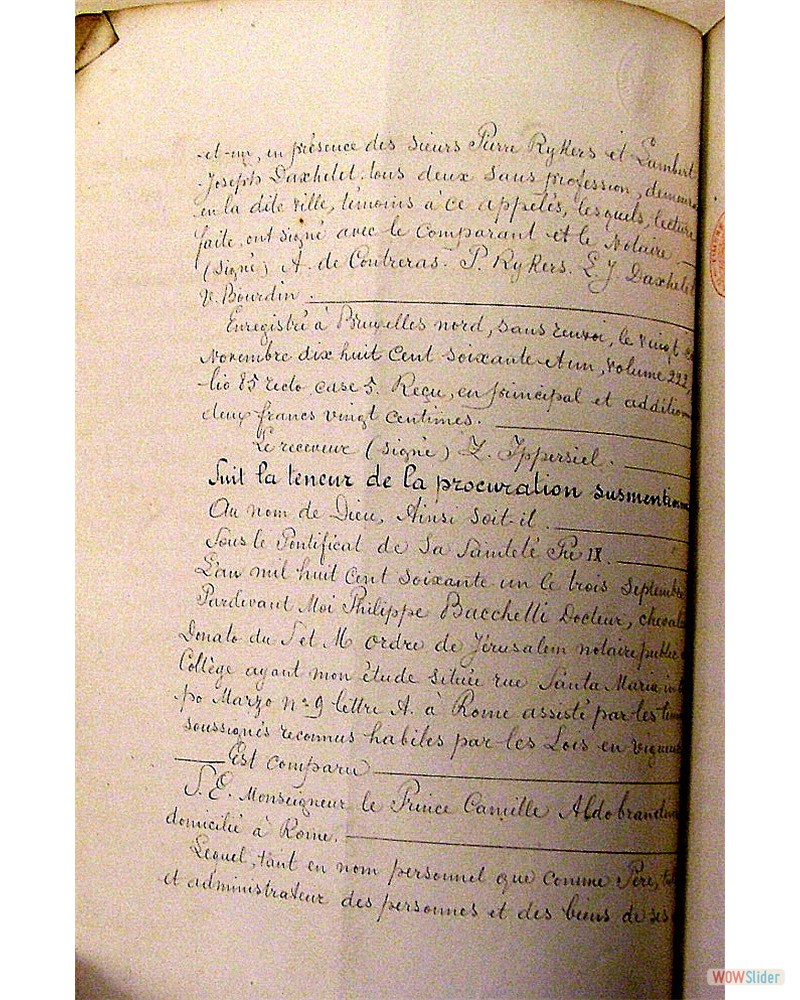 et-un, en présence des sieurs Pierre Rykers et Lambert
Joseph Daxhelet, tous deux sans profession, demeura
en la dite ville, témoins à ce appelés, lesquels, lecture
faite, ont signé avec le comparant et le Notaire.
(signé) A. de Contreras - P. Rykers. L. J. Daxhelet
V. Bourdin.
Enregistré à Bruxelles nord, sans renvoi, le vingt
Novembre dix huit cent soixante et un, volume 222,
lio 85 recto case 5. Reçu, en principal et addition
deux francs vingt centimes.
Le receveur (signé) Z. Ippersiel.
Suit la teneur de la procuration susmentionn
Au nom de Dieu, Ainsi soit-il.
Sous le Pontificat de Sa Sainteté Pie IX.
L'an mil huit cent soixante un le trois Septembre
Pardevant Moi Philippe Bacchetti Docteur, cheval
Donato du S et M ordre de Jérusalem notaire public
Collège ayant mon étude située rue Santa Maria in
po Marzo n° 9 lettre A. à Rome assisté par les tém
soussignés reconnus habiles par les Lois en vigueu
Est comparu
S. E. Monseigneur le Prince Camille Aldobrandin
domicilié à Rome.
Lequel, tant en nom personnel que comme Père, t
et administrateur des personnes et des biens de ses
WOWSlider